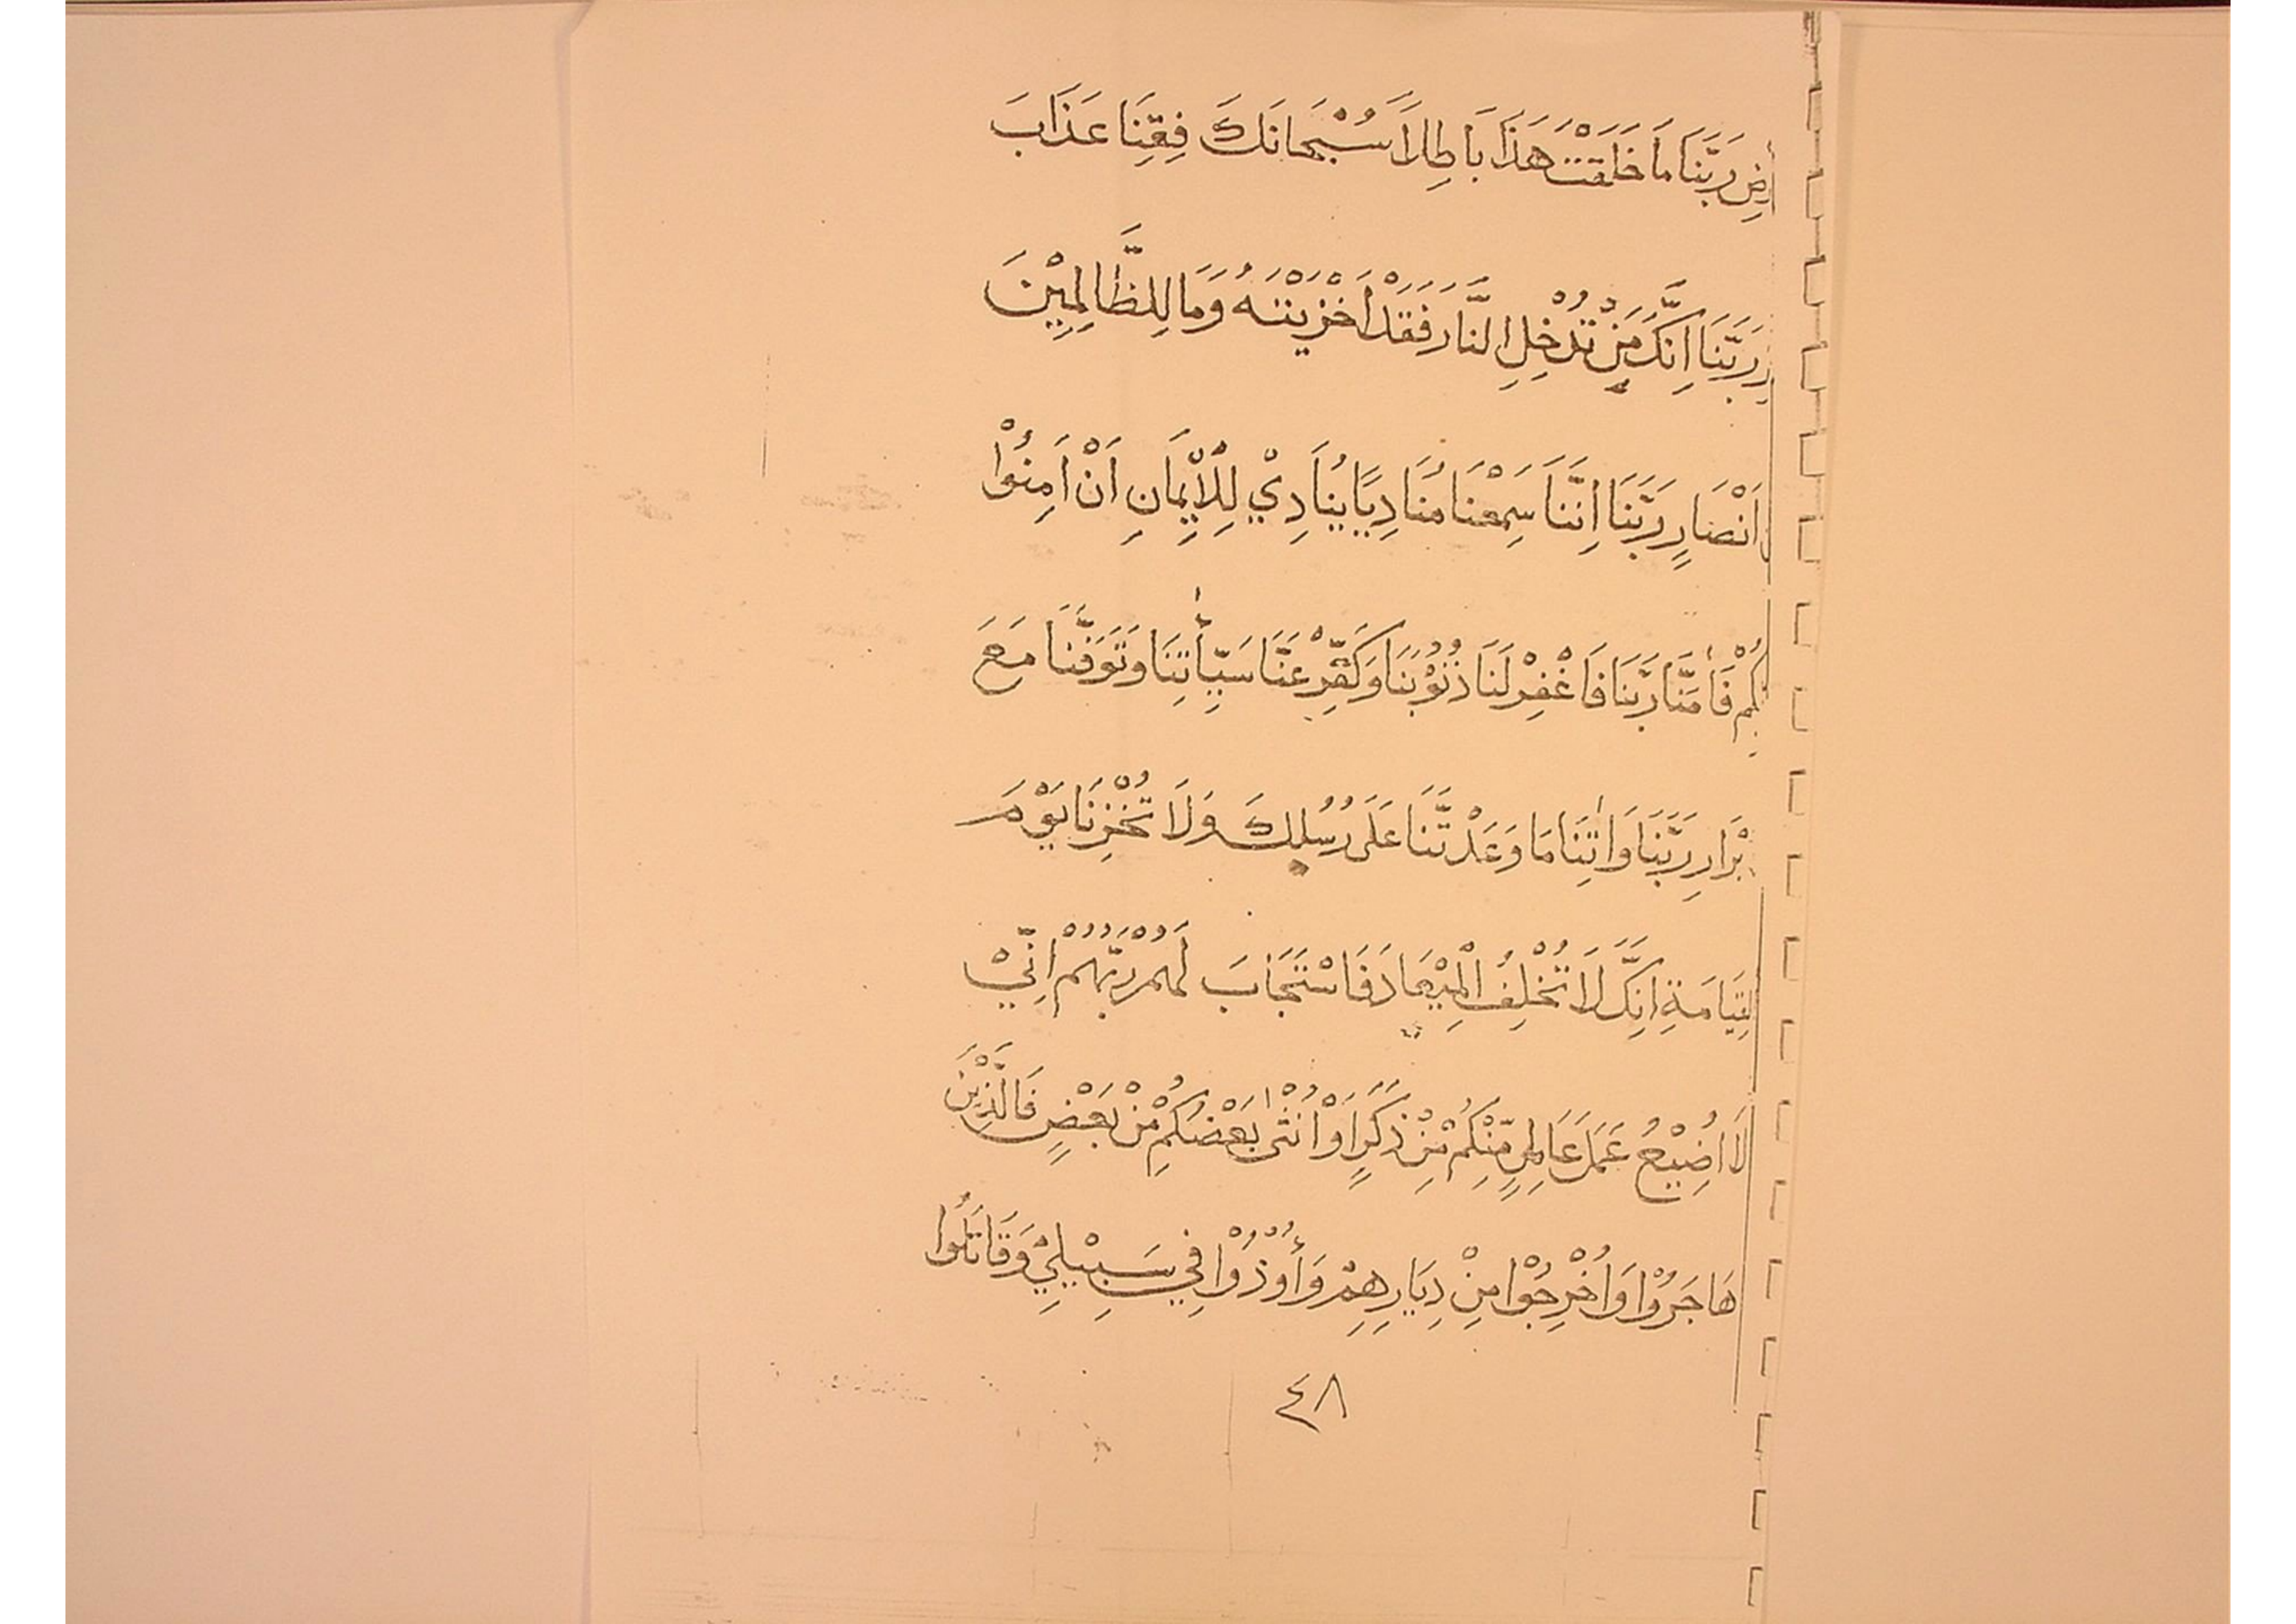 رْضِ رَبَّنَا مَا خَلَقْتَ هَذَا بَاطِلاً سُبْحَانَكَ فَقِنَا عَذَابَ
رِ رَبَّنَا اِنَّكَ مَنْ تُدْخِلِ النَّارَ فَقَدْ اَخْزَيْتَهُ وَمَا لِلظَّالِمِيْنَ
اَنْصَارٍ رَبَّنَا اِنَّنَا سَمِعْنَا مُنَادِيًا يُنَادِيْ لِلْاِيْمَانِ اَنْ اَمِنُوْا
بِّكُمْ فَاٰمَنَّا رَبَّنَا فَاغْفِرْ لَنَا ذُنُوْبَنَا وَكَفِّرْ عَنَّا سَيِّأٰتِنَا وَتَوَفَّنَا مَعَ
بْرَارِ رَبَّنَا وَاٰتِنَا مَا وَعَدْتَّنَا عَلَى رُسُلِكَ وَلَا تُخْزِنَا يَوْمَ
لْقِيَامَةِ اِنَّكَ لَا تُخْلِفُ الْمِيْعَادَ فَاسْتَجَابَ لَهُمْ رَبُّهُمْ اِنِّيْ
لَا اُضِيْعُ عَمَلَ عَامِلٍ مِّنْكُمْ مِّنْ ذَكَرٍ اَوْ اُنْثٰى بَعْضُكُمْ مِنْ بَعْضٍ فَالَّذِيْنَ
هَاجَرُوْا وَاُخْرِجُوْا مِنْ دِيَارِهِمْ وَأُوْذُوْا فِي سَبِيْلِيْ وَقَاتَلُوا
٤٨